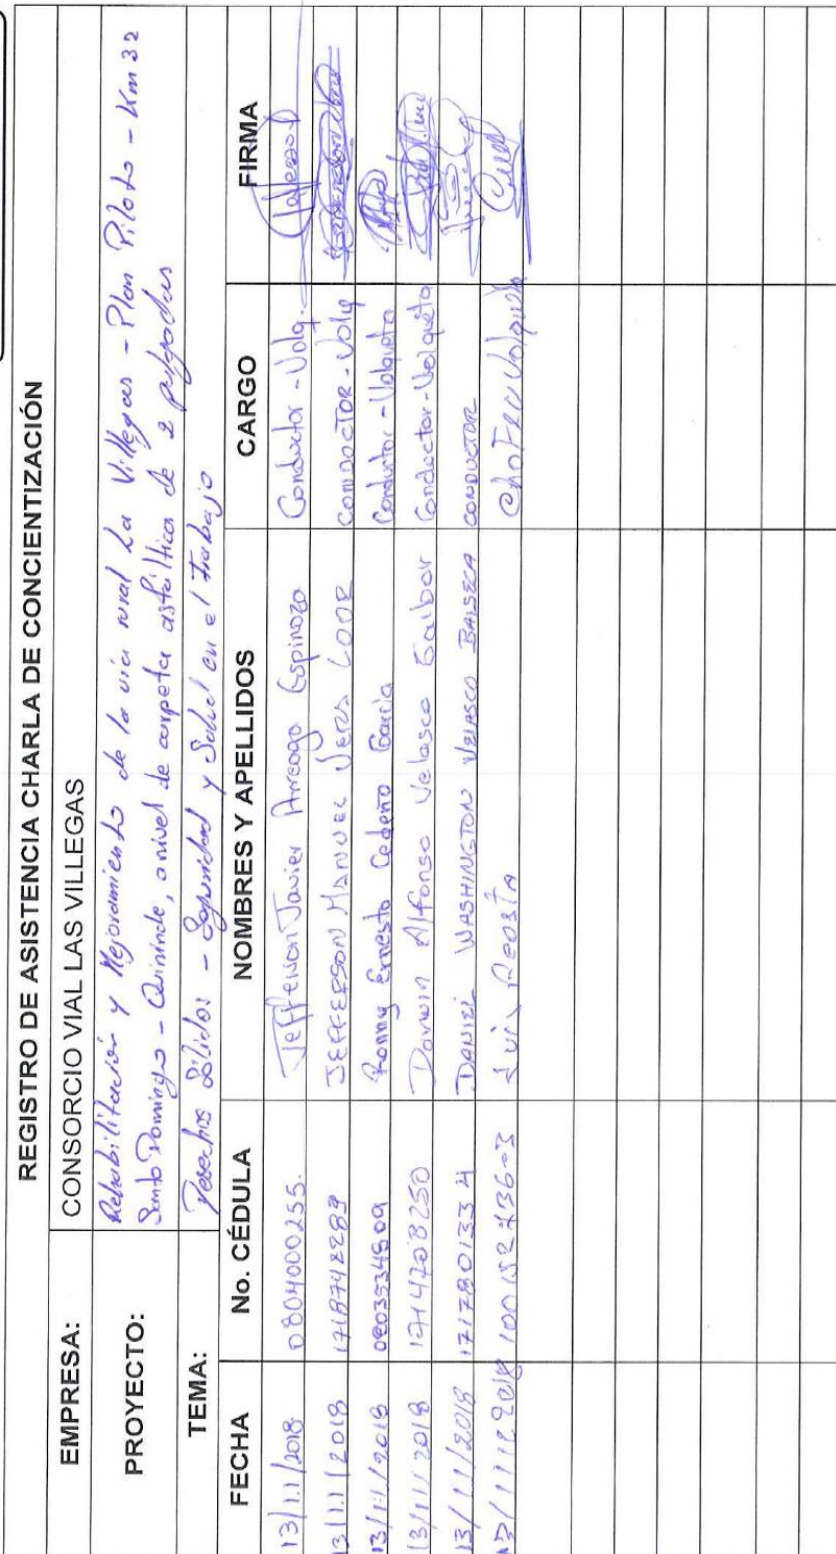 REGISTRO DE ASISTENCIA CHARLA DE CONCIENTIZACIÓN
EMPRESA: CONSORCIO VIAL LAS VILLEGAS
PROYECTO: Rehabilitación y Mejoramiento de la vía rural La Villegas - Plan Piloto - Km 32
Santo Domingo - Quininde, a nivel de carpeta asfáltica de 2 pulgadas
TEMA: Desechos Sólidos - Seguridad y Salud en el trabajo
FECHA No. CÉDULA NOMBRES Y APELLIDOS CARGO FIRMA
13/11/2018 0804000255. Jefferson Javier Arreaga Espinoza Conductor - Volq.
13/11/2018 1718742289 JEFFERSON MANUEL VERA LOOR CONDUCTOR - Volq
13/11/2018 Ronny Ernesto Cedeño García Conductor - Volqueta
13/11/2018 1714208250 Darwin Alfonso Velasco Galbor Conductor - Volqueta
13/11/2018 1717801334 DANIEL WASHINGTON VELASCO BALSECA CONDUCTOR
Luis Acosta Chofer Volqueta